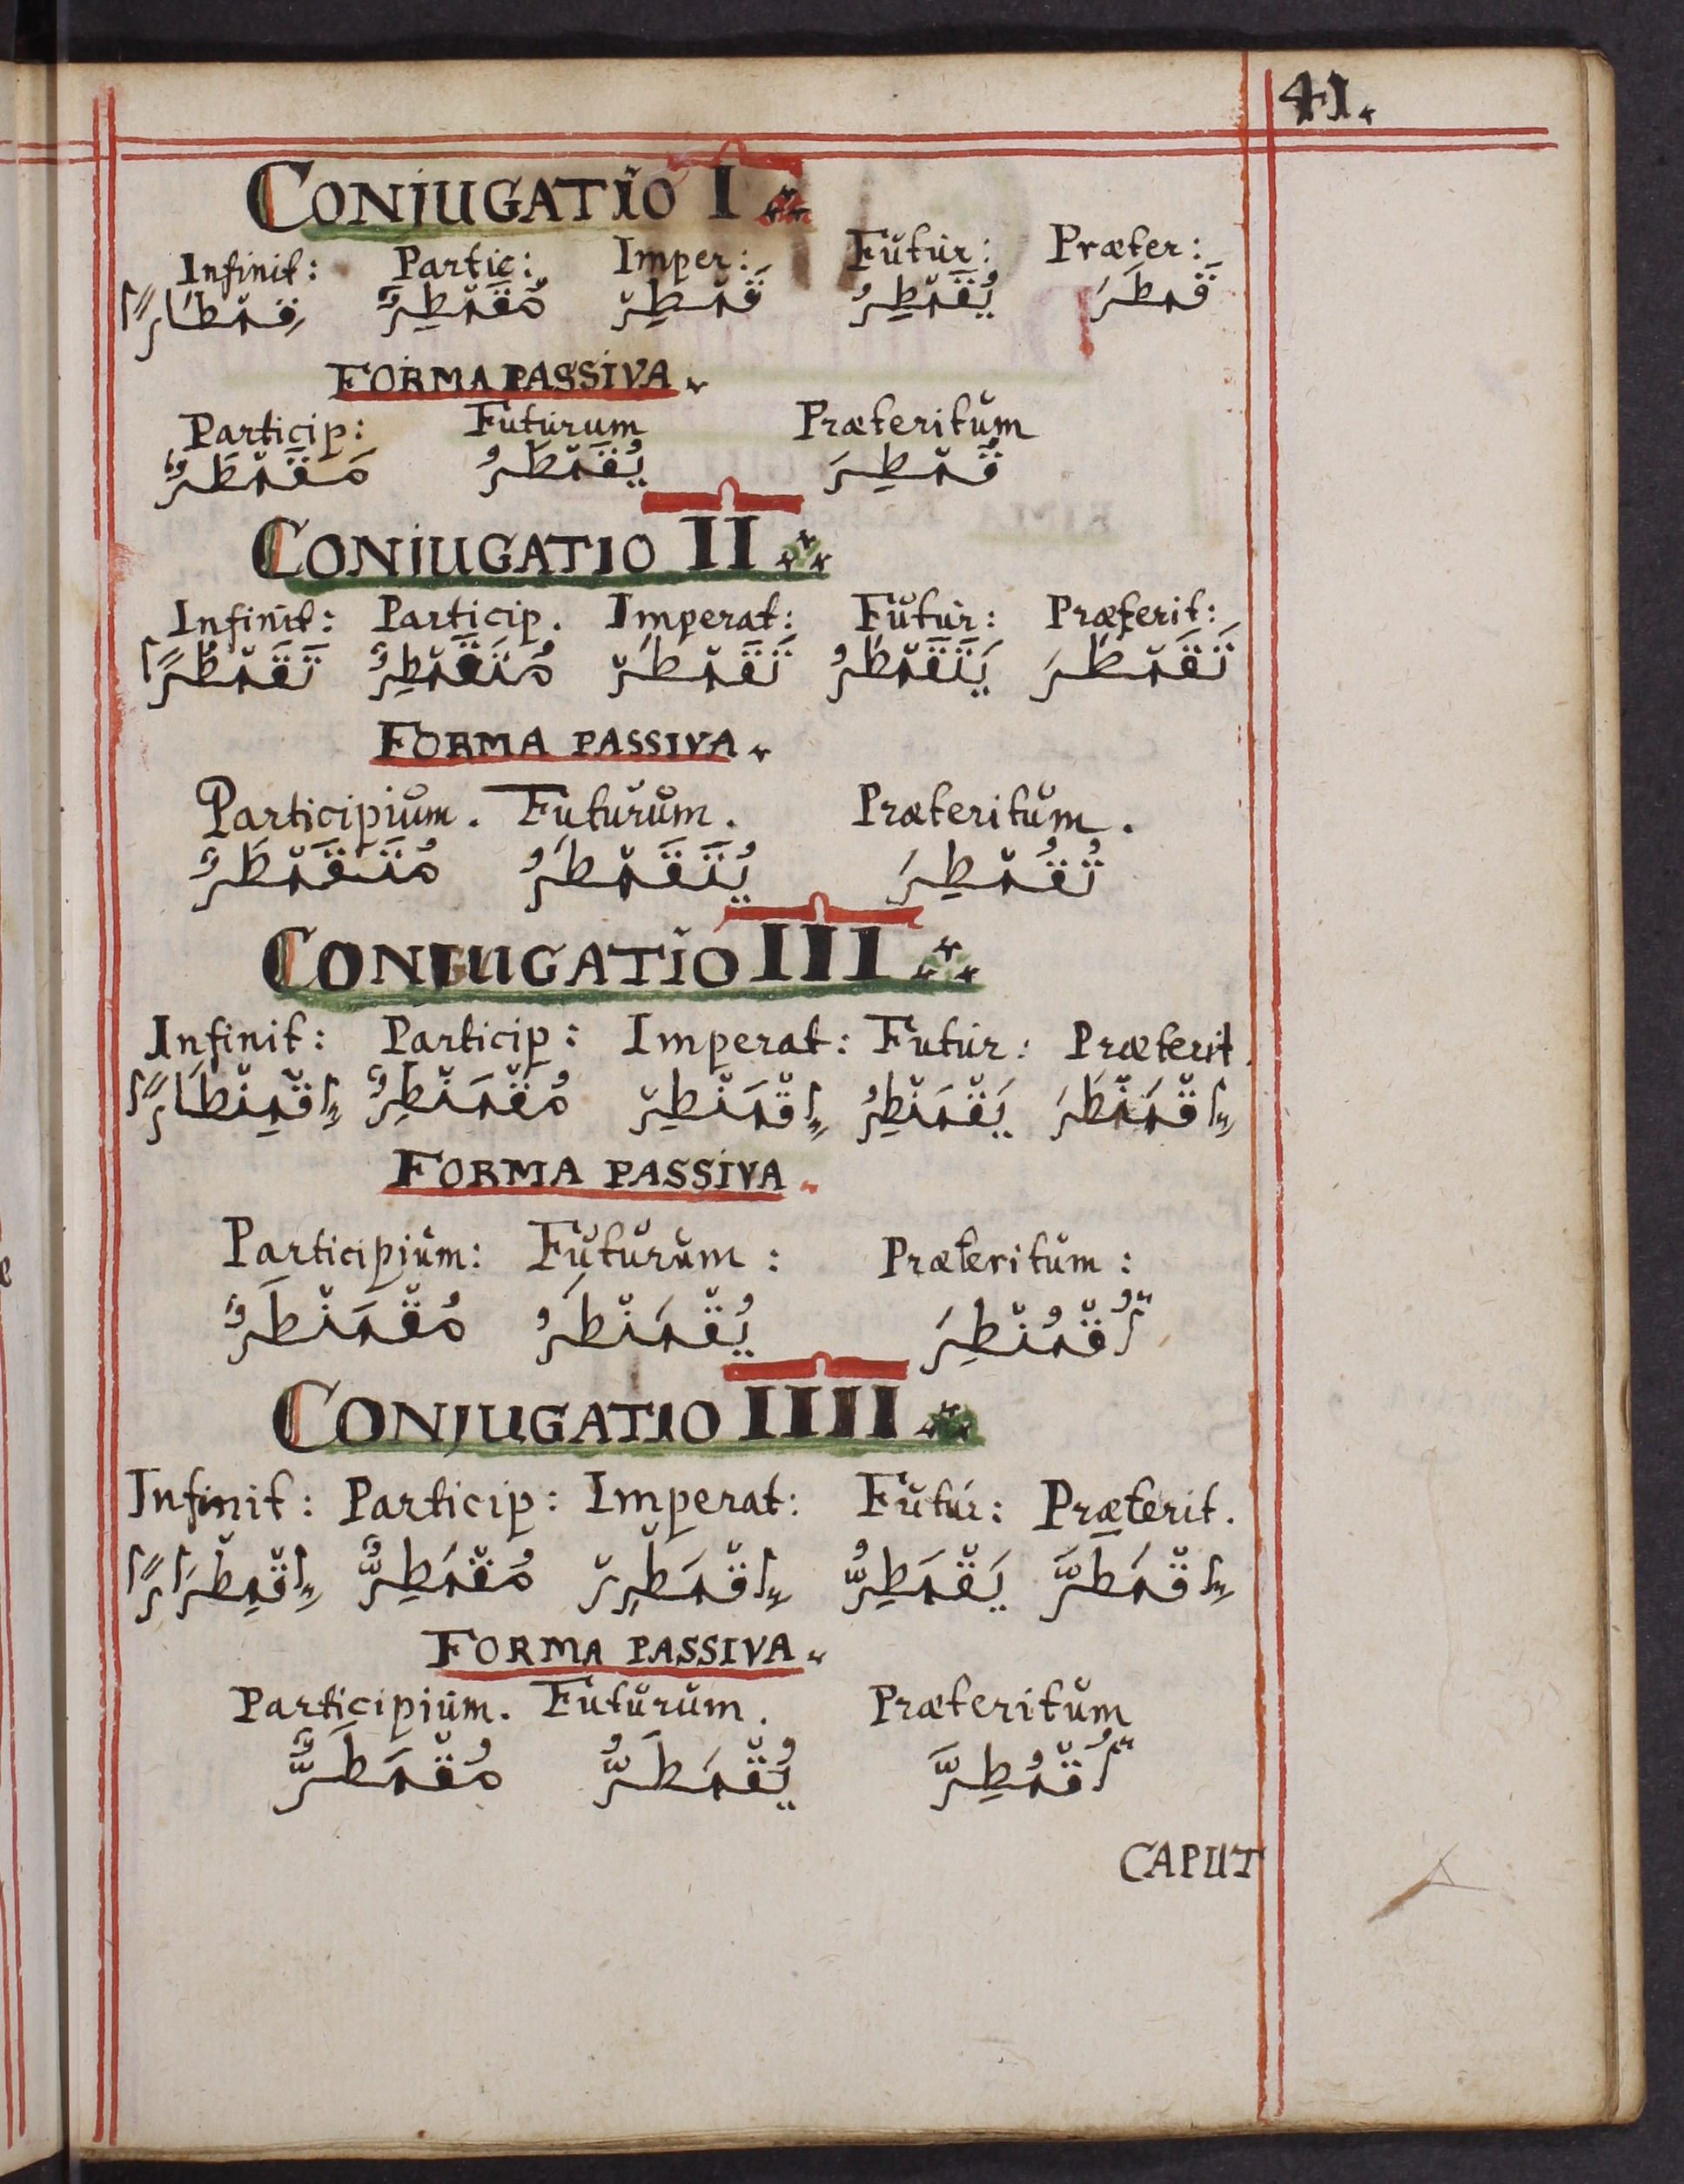 41.
CONJUGATIO I
Infinit: Partic: Imper: Futur: Præter:
قَمْطَرَ يُقَمْطِرُ قَمْطِرْ مُقَمْطِرٌ قِمْطَارًا
FORMA PASSIVA.
Particip: Futurum Præteritum
قُمْطِرَ يُقَمْطَرُ مَقَمْطَرٌ
CONJUGATIO II
Infinit: Particip. Imperat: Futur: Præterit:
تَقَمْطَرَ يَتَقَمْطَرُ تَقَمْطَرْ مُتَقَمْطِرٌ تَقَمْطُرًا
FORMA PASSIVA.
Participium. Futurum. Præteritum.
تُقُمْطِرَ يُتَقَمْطَرُ مُتَقَمْطَرٌ
CONJUGATIO III
Infinit: Particip: Imperat: Futur: Præterit.
إِقْمَنْطَرَ يَقْمَنْطِرُ إِقْمَنْطِرْ مُقْمَنْطِرٌ إِقْمِنْطَارًا
FORMA PASSIVA
Participium: Futurum: Præteritum:
أُقْمُنْطِرَ يُقْمَنْطَرُ مُقْمَنْطَرٌ
CONJUGATIO IIII
Infinit: Particip: Imperat: Futur: Præterit.
إِقْمَطَرَّ يَقْمَطِرُّ إِقْمَطْرِرْ مُقْمَطِرٌّ إِقْمِطْرَارًا
FORMA PASSIVA.
Participium. Futurum. Præteritum
أُقْمُطِرَّ يُقْمَطَرُّ مُقْمَطَرٌّ
CAPUT